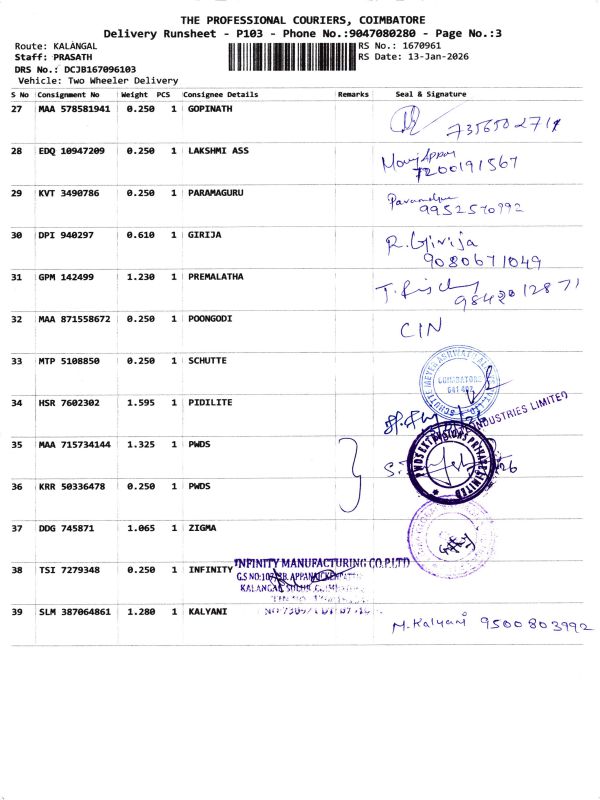 THE PROFESSIONAL COURIERS, COIMBATORE
Delivery Runsheet - P103 - Phone No.:9047080280 - Page No.:3
Route: KALANGAL RS No.: 1670961
Staff: PRASATH RS Date: 13-Jan-2026
DRS No.: DCJB167096103
Vehicle: Two Wheeler Delivery
S No Consignment No Weight PCS Consignee Details Remarks Seal & Signature
27 MAA 578581941 0.250 1 GOPINATH
28 EDQ 10947209 0.250 1 LAKSHMI ASS
7200191567
29 KVT 3490786 0.250 1 PARAMAGURU
9952570992
30 DPI 940297 0.610 1 GIRIJA R.Girija
9080671049
31 GPM 142499 1.230 1 PREMALATHA
9842012871
32 MAA 871558672 0.250 1 POONGODI CIN
33 MTP 5108850 0.250 1 SCHUTTE
COIMBATORE
34 HSR 7602302 1.595 1 PIDILITE
INDUSTRIES LIMITED
35 MAA 715734144 1.325 1 PWDS
PWDS EXTENSIONS PRIVATE LIMITED
36 KRR 50336478 0.250 1 PWDS
37 DDG 745871 1.065 1 ZIGMA
38 TSI 7279348 0.250 1 INFINITY
INFINITY MANUFACTURING CO.P.LTD
KALANGAL
39 SLM 387064861 1.280 1 KALYANI M.Kalyani 9500803992